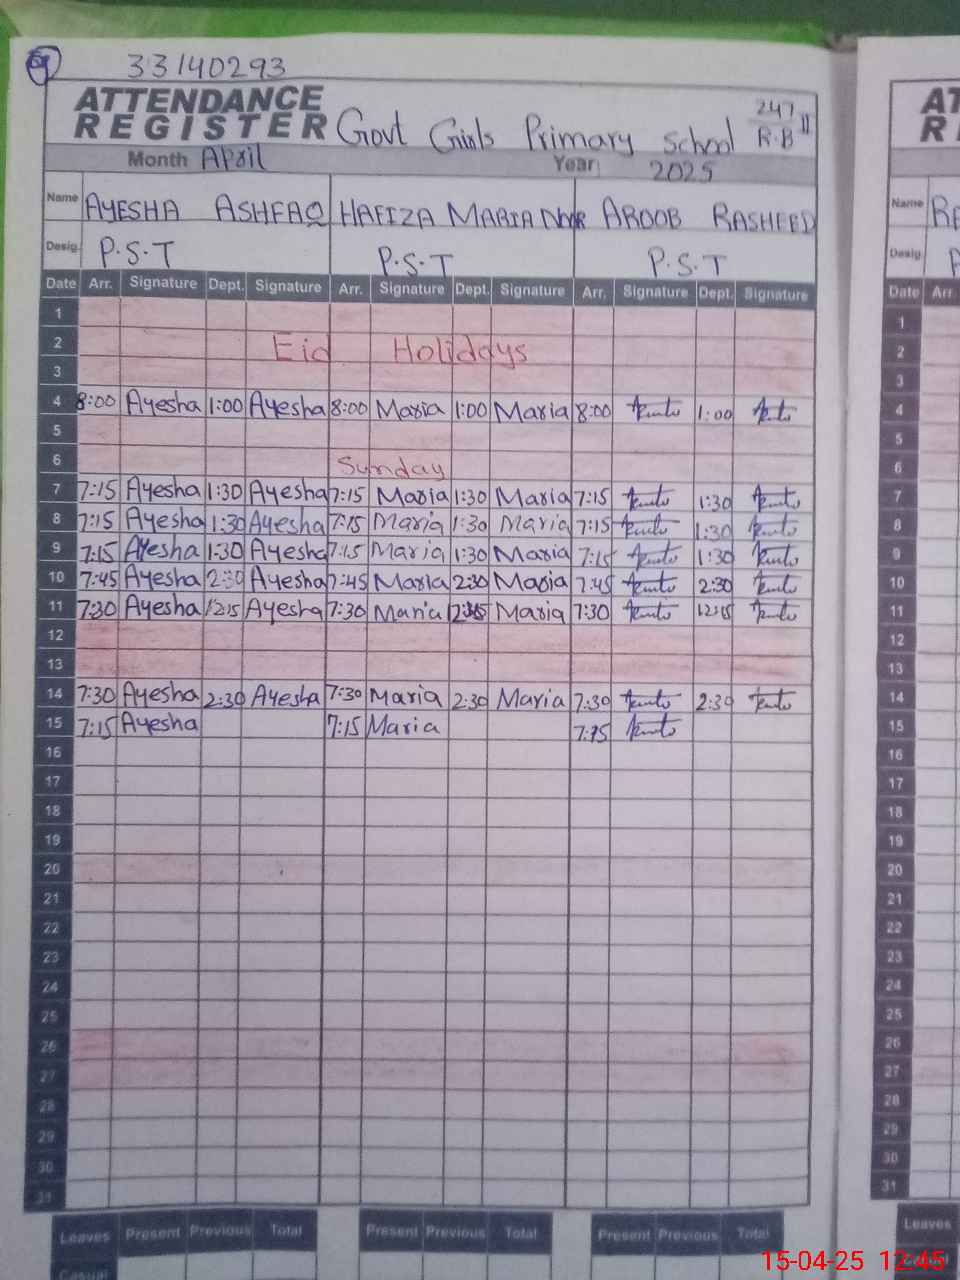 33140293
ATTENDANCE
REGISTER Govt Girls Primary School 247 R.B II
Month April Year 2025
Name AYESHA ASHFAQ HAFIZA MARIA Noor AROOB RASHEED
Desig. P.S.T P.S.T P.S.T
Date Arr. Signature Dept. Signature Arr. Signature Dept. Signature Arr. Signature Dept. Signature
1
2 Eid Holidays
3
4 8:00 Ayesha 1:00 Ayesha 8:00 Maria 1:00 Maria 8:00 1:00
5
6 Sunday
7 7:15 Ayesha 1:30 Ayesha 7:15 Maria 1:30 Maria 7:15 1:30
8 7:15 Ayesha 1:30 Ayesha 7:15 Maria 1:30 Maria 7:15 1:30
9 7:15 Ayesha 1:30 Ayesha 7:15 Maria 1:30 Maria 7:15 1:30
10 7:45 Ayesha 2:30 Ayesha 7:45 Maria 2:30 Maria 7:45 2:30
11 7:30 Ayesha 12:15 Ayesha 7:30 Maria Maria 7:30 12:15
12
13
14 7:30 Ayesha 2:30 Ayesha 7:30 Maria 2:30 Maria 7:30 2:30
15 7:15 Ayesha 7:15 Maria 7:15
16
17
18
19
20
21
22
23
24
25
26
27
28
29
30
31
Leaves Present Previous Total Present Previous Total Present Previous Total
Casual
AT
R
Name
Desig.
Date Arr
1
2
3
4
5
6
7
8
9
10
11
12
13
14
15
16
17
18
19
20
21
22
23
24
25
26
27
28
29
30
31
Leaves
Casual
15-04-25 12:45